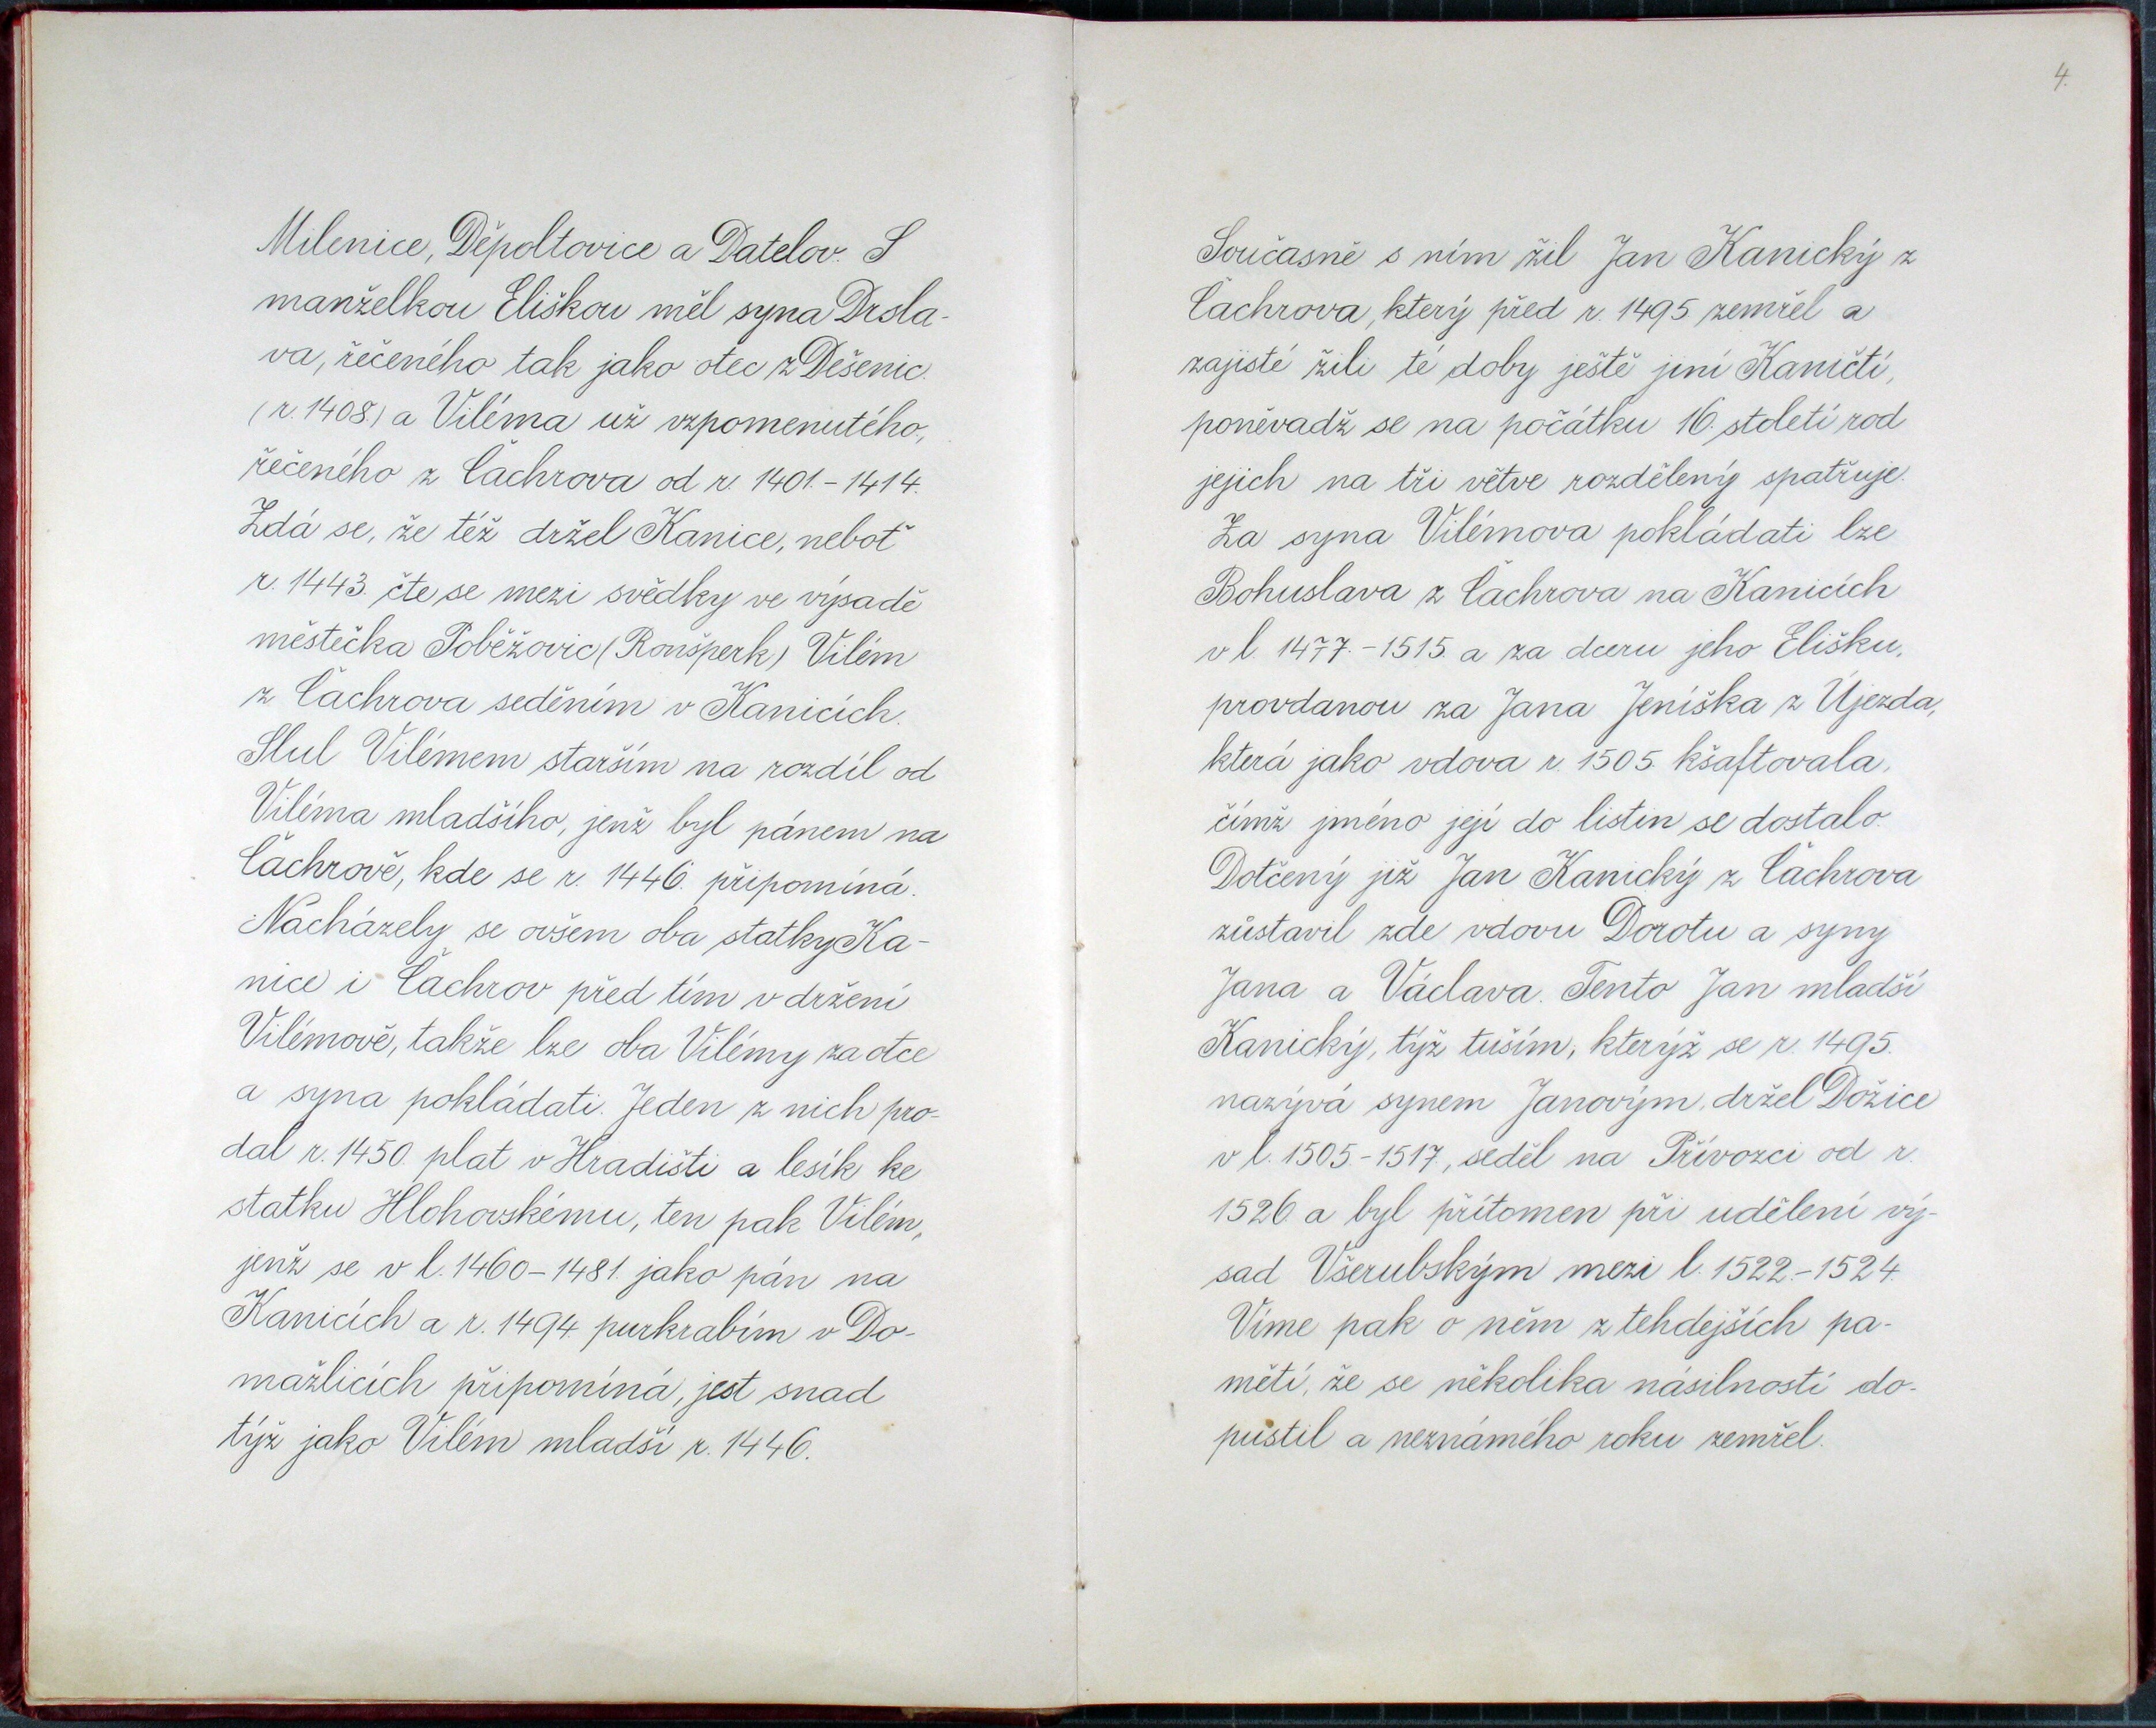 Milenice, Děpoltovice a Datelov. S
manželkou Eliškou měl syna Drsla-
va, řečeného tak jako otec z Děšenic.
(r. 1408.) a Viléma už vzpomenutého,
řečeného z Čachrova od r. 1401. - 1414.
Zdá se, že též držel Kanice, neboť
r. 1443. čte se mezi svědky ve výsadě
městečka Poběžovic (Ronšperk) Vilém
z Čachrova seděním v Kanicích.
Slul Vilémem starším na rozdíl od
Viléma mladšího, jenž byl pánem na
Čachrově, kde se r. 1446. připomíná.
Nacházely se ovšem oba statky Ka-
nice i Čachrov před tím v držení
Vilémově, takže lze oba Vilémy za otce
a syna pokládati. Jeden z nich pro-
dal r. 1450. plat v Hradišti a lesík ke
statku Hlohovskému, ten pak Vilém,
jenž se v l. 1460 - 1481. jako pán na
Kanicích a r. 1494 purkrabím v Do-
mažlicích připomíná, jest snad
týž jako Vilém mladší r. 1446.
4.
Současně s ním žil Jan Kanický z
Čachrova, který před r. 1495 zemřel a
zajisté žili té doby ještě jiní Kaničtí,
poněvadž se na počátku 16. století rod
jejich na tři větve rozdělený spatřuje.
Za syna Vilémova pokládati lze
Bohuslava z Čachrova na Kanicích
v l. 1477. - 1515. a za dceru jeho Elišku,
provdanou za Jana Jeníška z Újezda,
která jako vdova r. 1505. kšaftovala,
čímž jméno její do listin se dostalo.
Dotčený již Jan Kanický z Čachrova
zůstavil zde vdovu Dorotu a syny
Jana a Václava. Tento Jan mladší
Kanický, týž tuším, kterýž se r. 1495.
nazývá synem Janovým, držel Dožice
v l. 1505. - 1517., seděl na Přívozci od r.
1526 a byl přítomen při udělení vý-
sad Všerubským mezi l. 1522. - 1524.
Víme pak o něm z tehdejších pa-
mětí, že se několika násilností do-
pustil a neznámého roku zemřel.